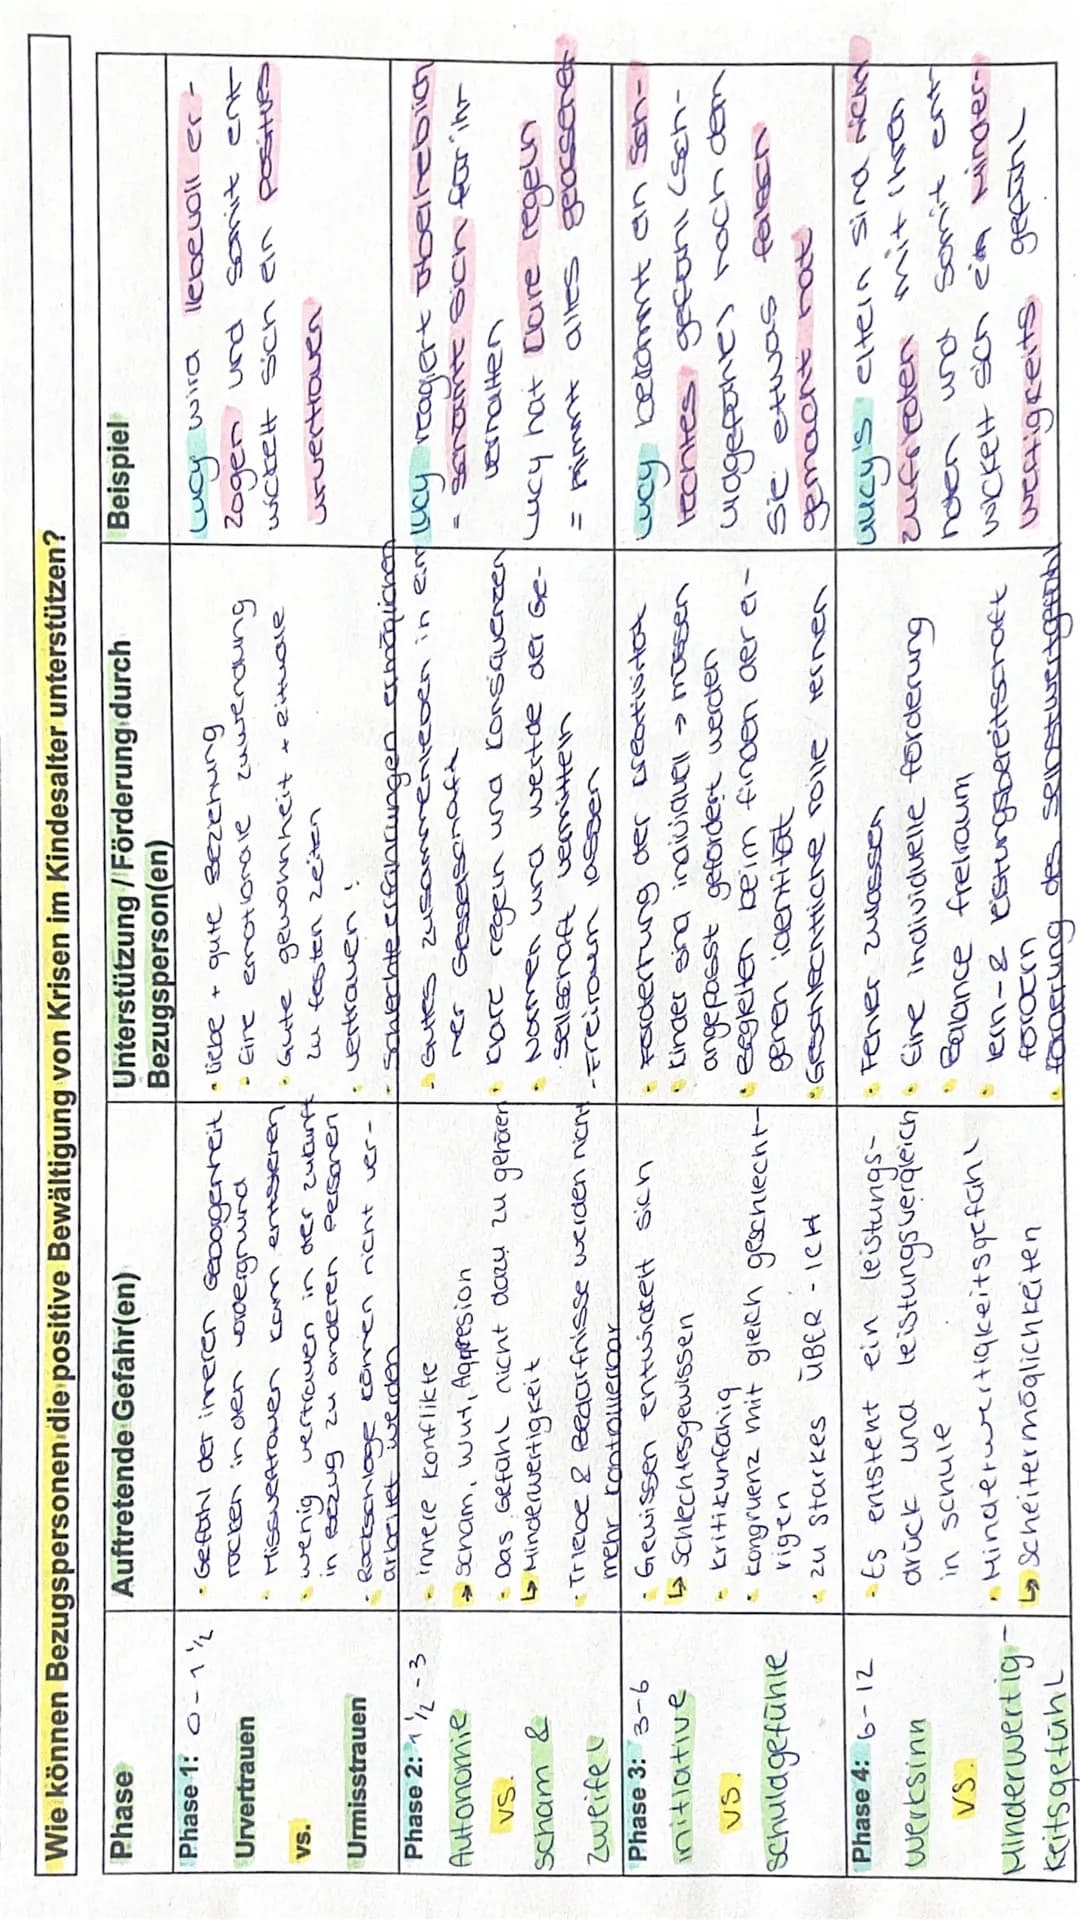 Wie können Bezugspersonen die positive Bewältigung von Krisen im Kindesalter unterstützen?
Phase
Auftretende Gefahr(en)
Unterstützung / Förderung durch
Bezugsperson(en)
Beispiel
Phase 1: 0-1 ½
Urvertrauen
vs.
Urmisstrauen
• Gefühl der inneren Geborgenheit
rücken in den vordergrund
• Missvertrauen kann entstehen
• wenig vertrauen in der zukunft
in Bezug zu anderen Personen
• Rückschläge können nicht ver-
arbeitet werden
• liebe + gute Beziehung
• Eine emotionale zuwendung
• Gute gewohnheit + Rituale
zu festen zeiten
• vertrauen!
• Schlechte erfahrungen ermöglichen
Lucy wird liebevoll er-
zogen und somit ent-
wickelt sich ein positives
urvertrauen
Phase 2: 1 ½ -3
Autonomie
vs.
scham &
zweifel
• innere konflikte
→ scham, wut, Aggresion
• Das Gefühl nicht dazu zu gehören
↳ Minderwertigkeit
• Triebe & Bedürfnisse werden nicht
mehr kontrollierbar
- Gutes zusammenleben in ein
ner Gesselschaft
• klare regeln und konsquenzen
• Normen und werte der Ge-
sellschaft vermitteln
- Freiraum lassen
Lucy reagiert überheblich
= schämte sich für ihr
verhalten
Lucy hat klare regeln
= nimmt alles gelassener
Phase 3: 3-6
initiative
vs.
schuldgefühle
• Gewissen entwickelt sich
↳ schlechtesgewissen
• kritikunfähig
• kongruenz mit gleich geschlecht-
rigen
• zu starkes ÜBER-ICH
• Förderung der kreativität
• Kinder sind individuell → müssen
angepasst gefördert werden
• Begleiten beim finden der ei-
genen identität
• Geschlechtliche rolle lernen
Lucy bekommt ein sch-
lechtes gefühl (sch-
uldgefühle) nach dem
Sie etwas falsch
gemacht hat
Phase 4: 6-12
werksinn
vs.
Minderwertig-
keitsgefühl
• Es entsteht ein leistungs-
druck und leistungsvergleich
in schule
• Minderwertigkeitsgefühl
↳ Scheitermöglichkeiten
• Fehler zulassen
• Eine individuelle förderung
• Balance freiraum
• lern- & leistungsbereitschaft
fördern
• förderung des selbstwertgefühl
Lucy's eltern sind nicht
zufrieden mit ihren
noten und somit ent
wickelt sich ein Minder-
wertigkeits gefühl